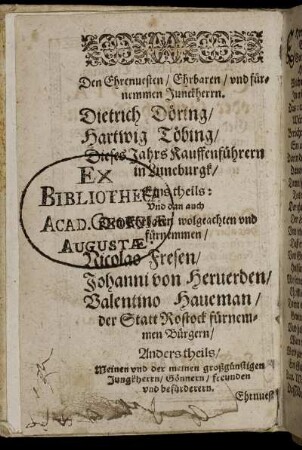 Den Ehrenuesten/ Ehrbaren/ vnd für-
nemmen Junckherrn.
Dietrich Döring/
Hartwig Töbing/
Dieses Jahrs Kauffenführern
in Luneburgk/
Eins theils:
Vnd dan auch
wolgeachten vnd
fürnemmen/
Nicolao Fresen/
Johanni von Heruerden/
Valentino Haueman/
der Statt Rostock fürnem-
men Bürgern/
Anders theils/
Meinen vnd der meinen großgünstigen
Jungkherrn/ Gönnern/ freunden
vnd befürderern.
Ehrnuest
EX
BIBLIOTHECA
ACAD. GEORGIÆ
AUGUSTÆ.